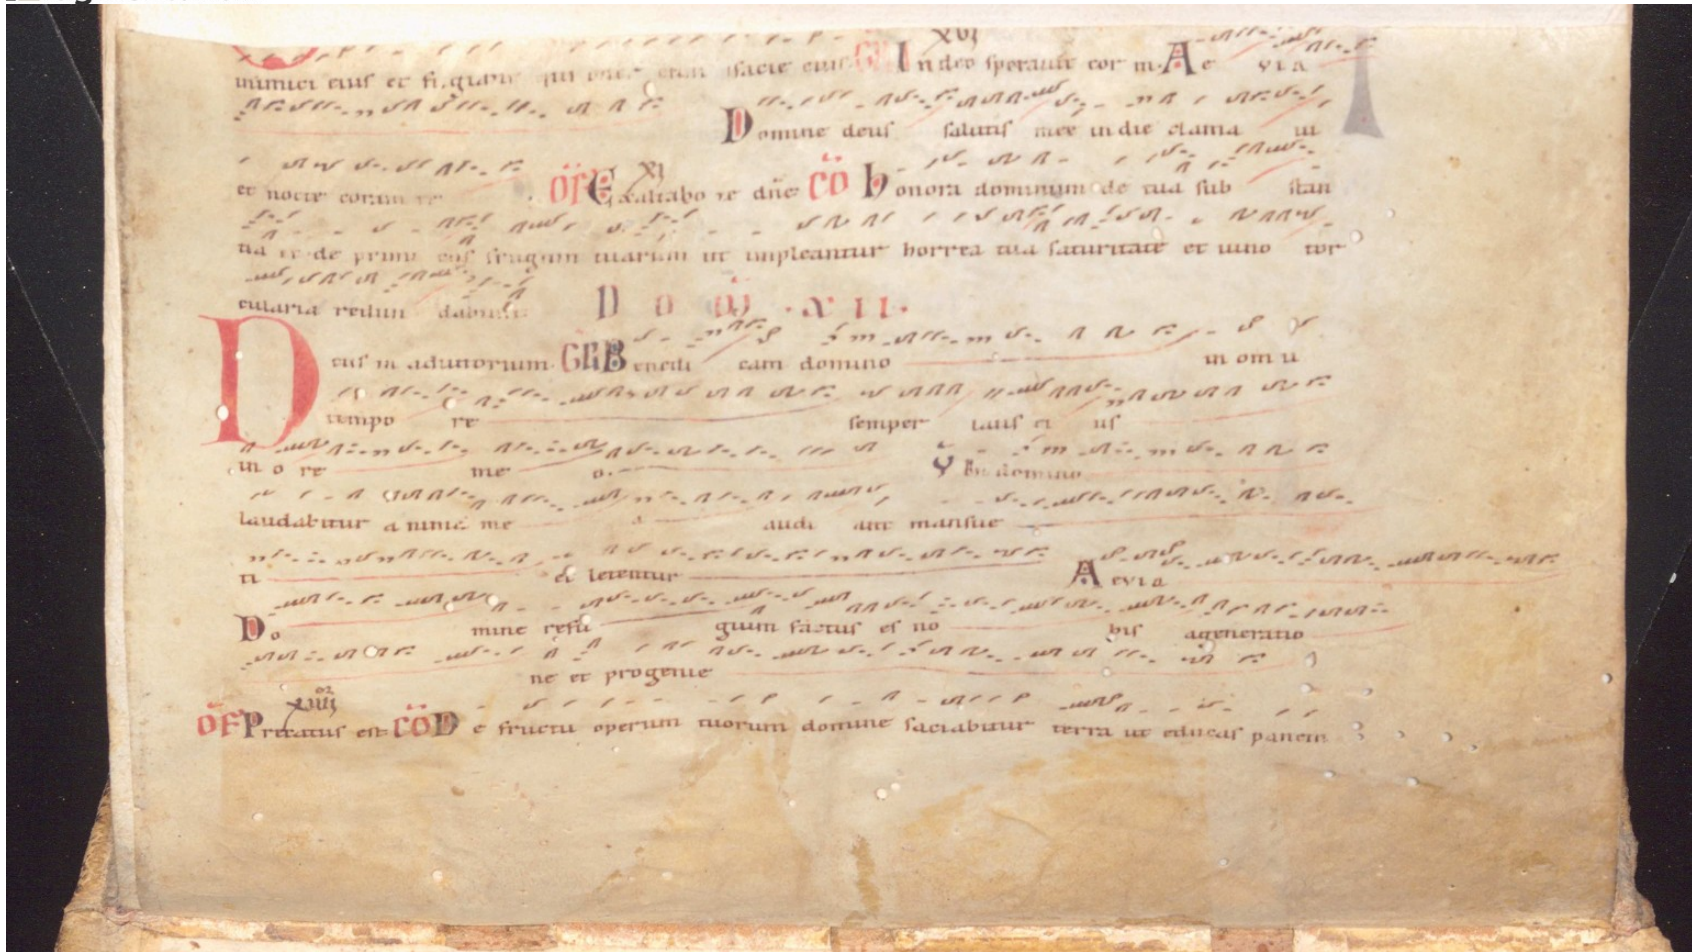 inimici eius et fugiant qui oderunt eum a facie eius GR In deo sperauit cor m. Ae via
Domine deus salutis mee in die clama ui
et nocte coram te OF Exaltabo te dn̄e CO honora dominum de tua sub stan
tia et de primi tiis frugum tuarum ut impleantur horrea tua saturitate et uino tor
cularia redun dabunt DOM XII
Deus in adiutorium GR Benedi cam domino in om ni
tempo re semper laus ei us
in o re me o V In domino
laudabitur anima me a audi ant mansue
ti & letentur Aevia
Do mine refu gium factus es no bis ageneratio
ne et progenie
XIIII
OF Precatus est CO De fructu operum tuorum domine saciabitur terra ut educas panem